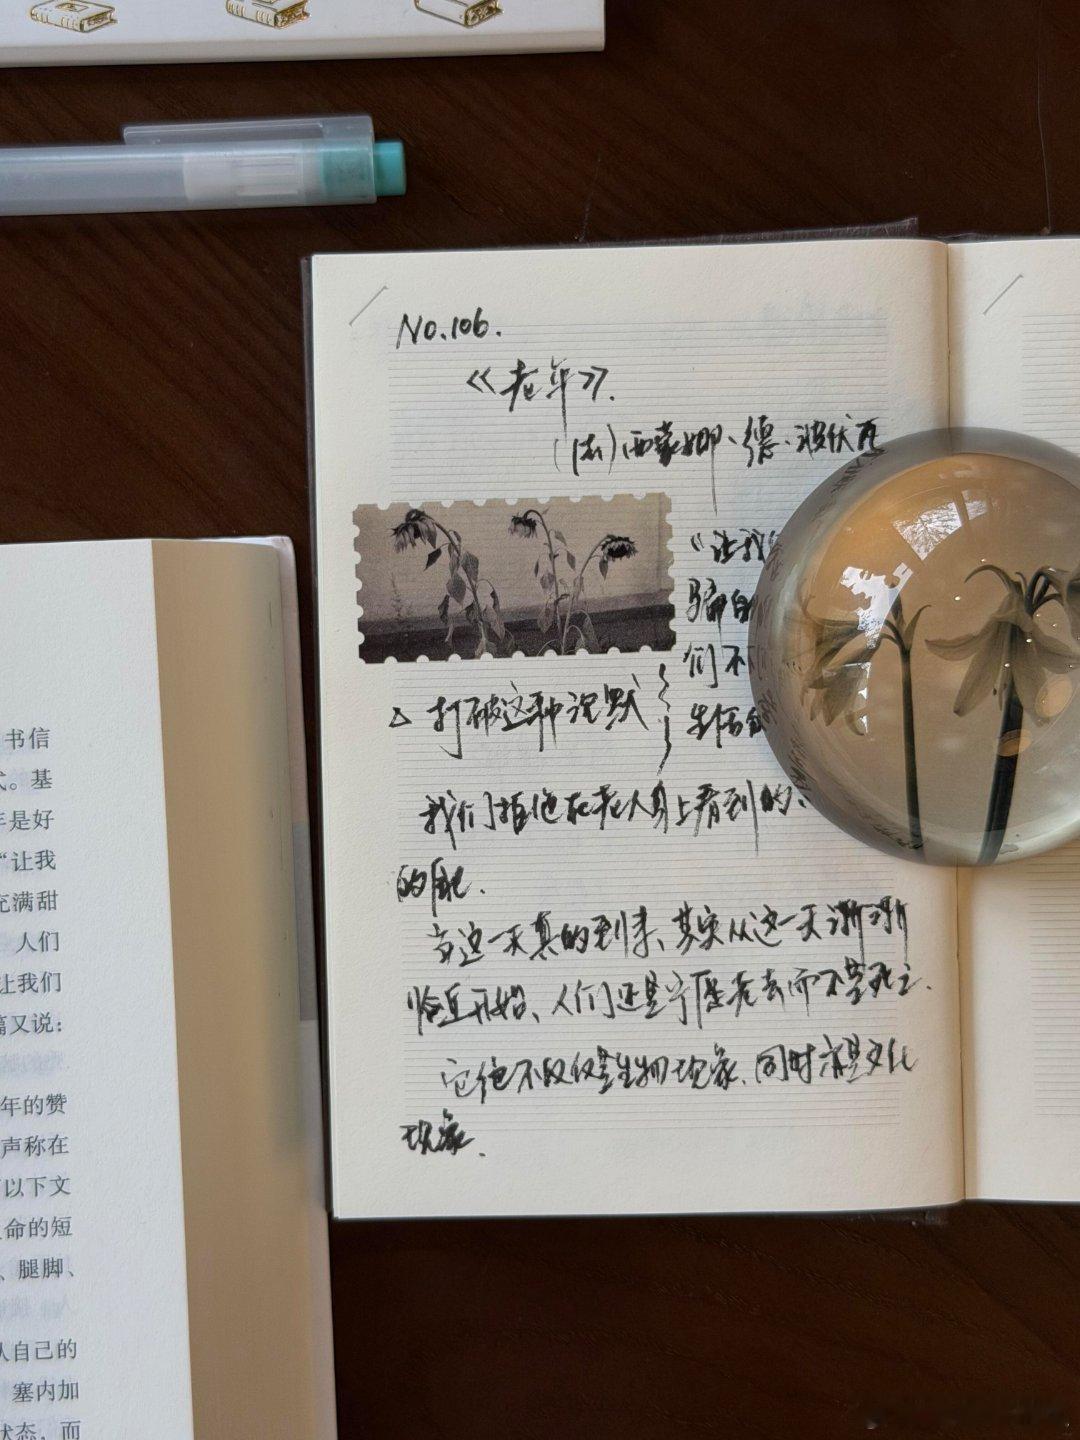 No.106.
《老年》.
(法)西蒙娜·德·波伏瓦
“让我
骗自
们不
生活的
△ 打破这种沉默
我们拒绝在老人身上看到的、
的自己.
当这一天真的到来、其实从这一天渐渐
临近开始、人们还是宁愿老去而不是死亡.
它绝不仅仅是生物现象、同时亦是文化
现象.
书信
式。基
年是好
“让我
充满甜
人们
让我们
篇又说:
年的赞
声称在
以下文
命的短
、腿脚、
人自己的
塞内加
状态，而